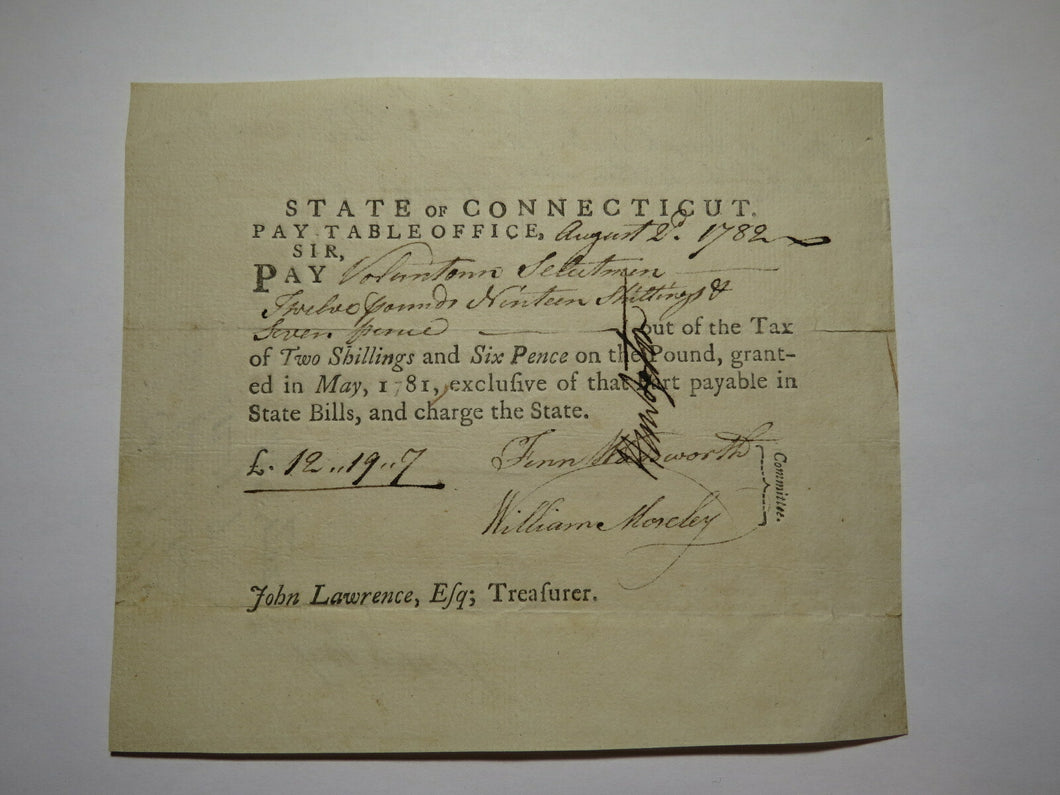 STATE OF CONNECTICUT.
PAY-TABLE OFFICE, August 2d. 1782
SIR,
PAY Voluntown Selectmen
Twelve pounds Ninteen Shillings &
Seven pence out of the Tax
of Two Shillings and Six Pence on the Pound, grant-
ed in May, 1781, excluſive of that Part payable in
State Bills, and charge the State.
£. 12..19..7 Fenn Wadsworth
William Moseley
Committee.
John Lawrence, Eſq; Treaſurer.